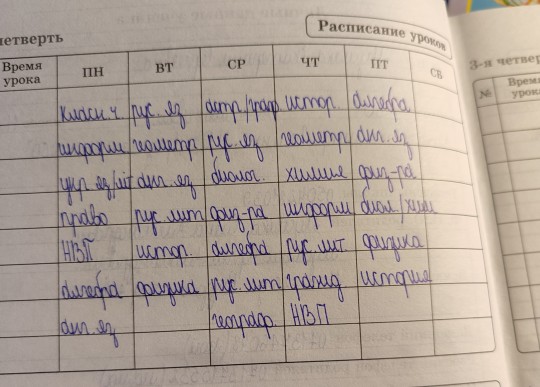 четверть
Расписание уроков
Время урока ПН ВТ СР ЧТ ПТ СБ
класн ч. рус. яз астр/граф истор. алгебра
информ геометр рус. яз геометр анг. яз
укр яз/лит анг. яз биолог. химия физ-ра
право рус лит физ-ра информ биол/хим
НВП истор. алгебра рус. лит физика
алгебра физика рус. лит гражд история
анг. яз географ. НВП
3-я четвер
№ Время урока